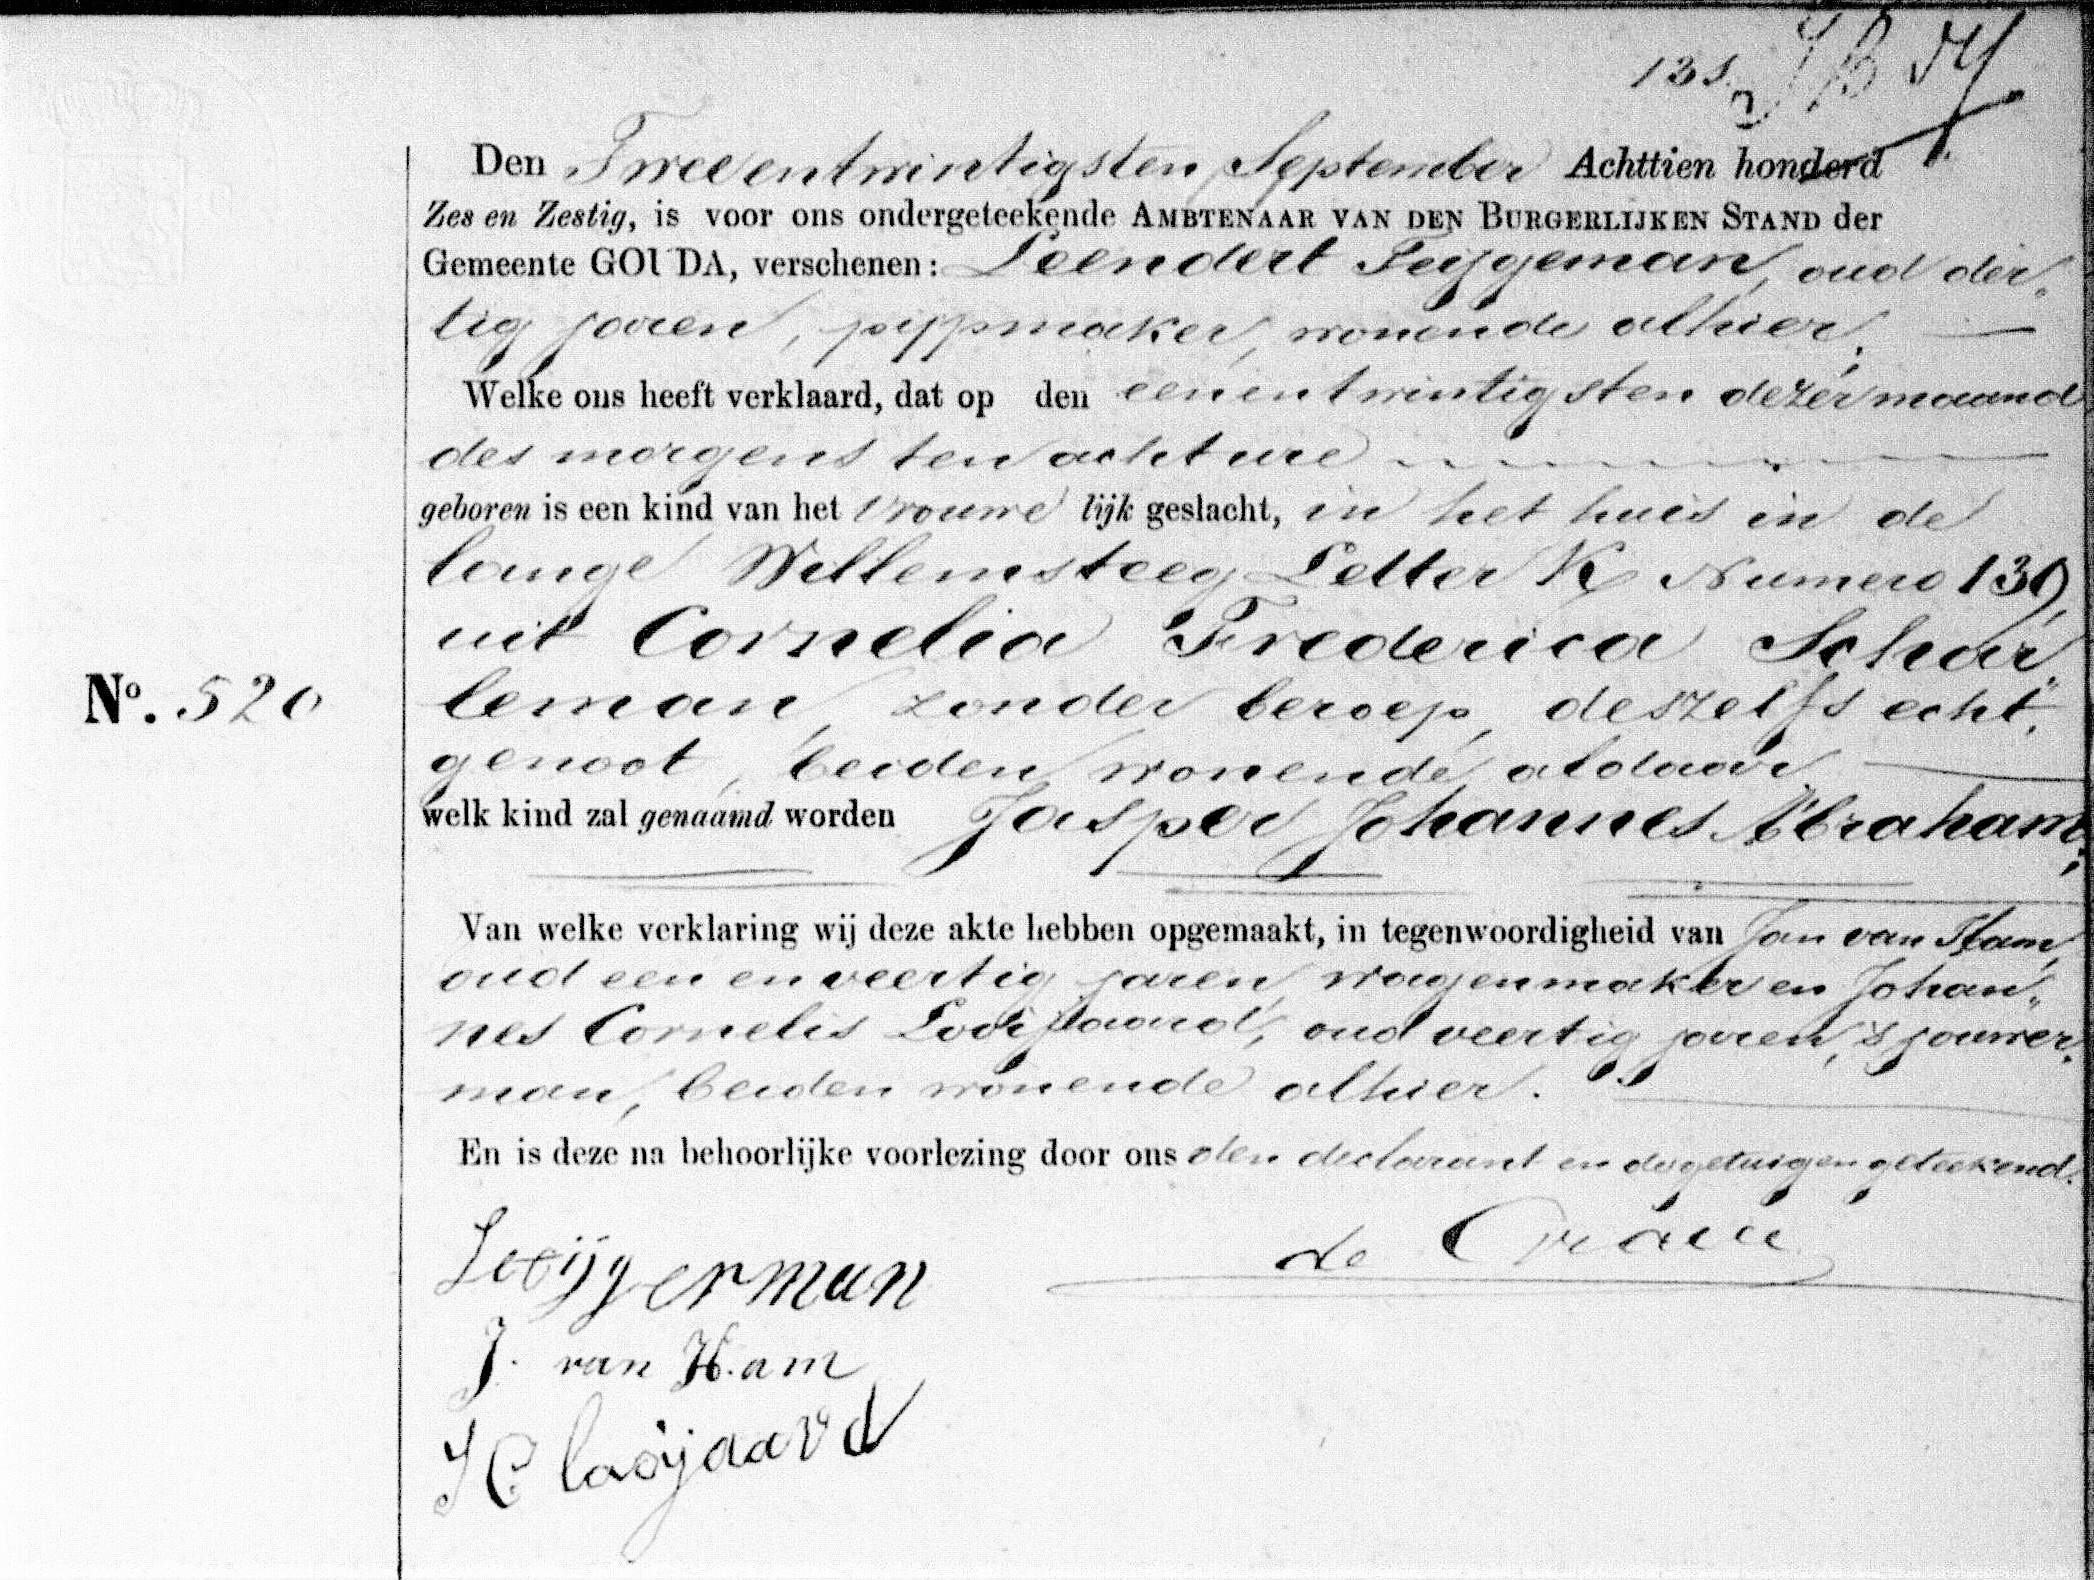 135.
Den Tweeentwintigsten September Achttien honderd
Zes en Zestig, is voor ons ondergeteekende AMBTENAAR VAN DEN BURGERLIJKEN STAND der
Gemeente GOUDA, verschenen: Leendert Teijgeman, oud der„
tig jaren, pijpmaker, wonende alhier,
Welke ons heeft verklaard, dat op den eenentwintigsten dezer maand
des morgens ten acht ure
geboren is een kind van het vrouwe lijk geslacht, in het huis in de
lange Willemsteeg Letter K Numero 139,
uit Cornelia Frederica Schar„
leman, zonder beroep, deszelfs echt„
genoot, beiden wonende aldaar
welk kind zal genaamd worden Jasper Johannes Abraham;
Van welke verklaring wij deze akte hebben opgemaakt, in tegenwoordigheid van Jan van Ham,
oud een en veertig jaren, wagenmaker en Johan„
nes Cornelis Looijaard, oud veertig jaren, sjouwer„
man, beiden wonende alhier.
En is deze na behoorlijke voorlezing door ons den declarant en de getuigen geteekend.
No. 520
de
J. van Ham
J C looijaard